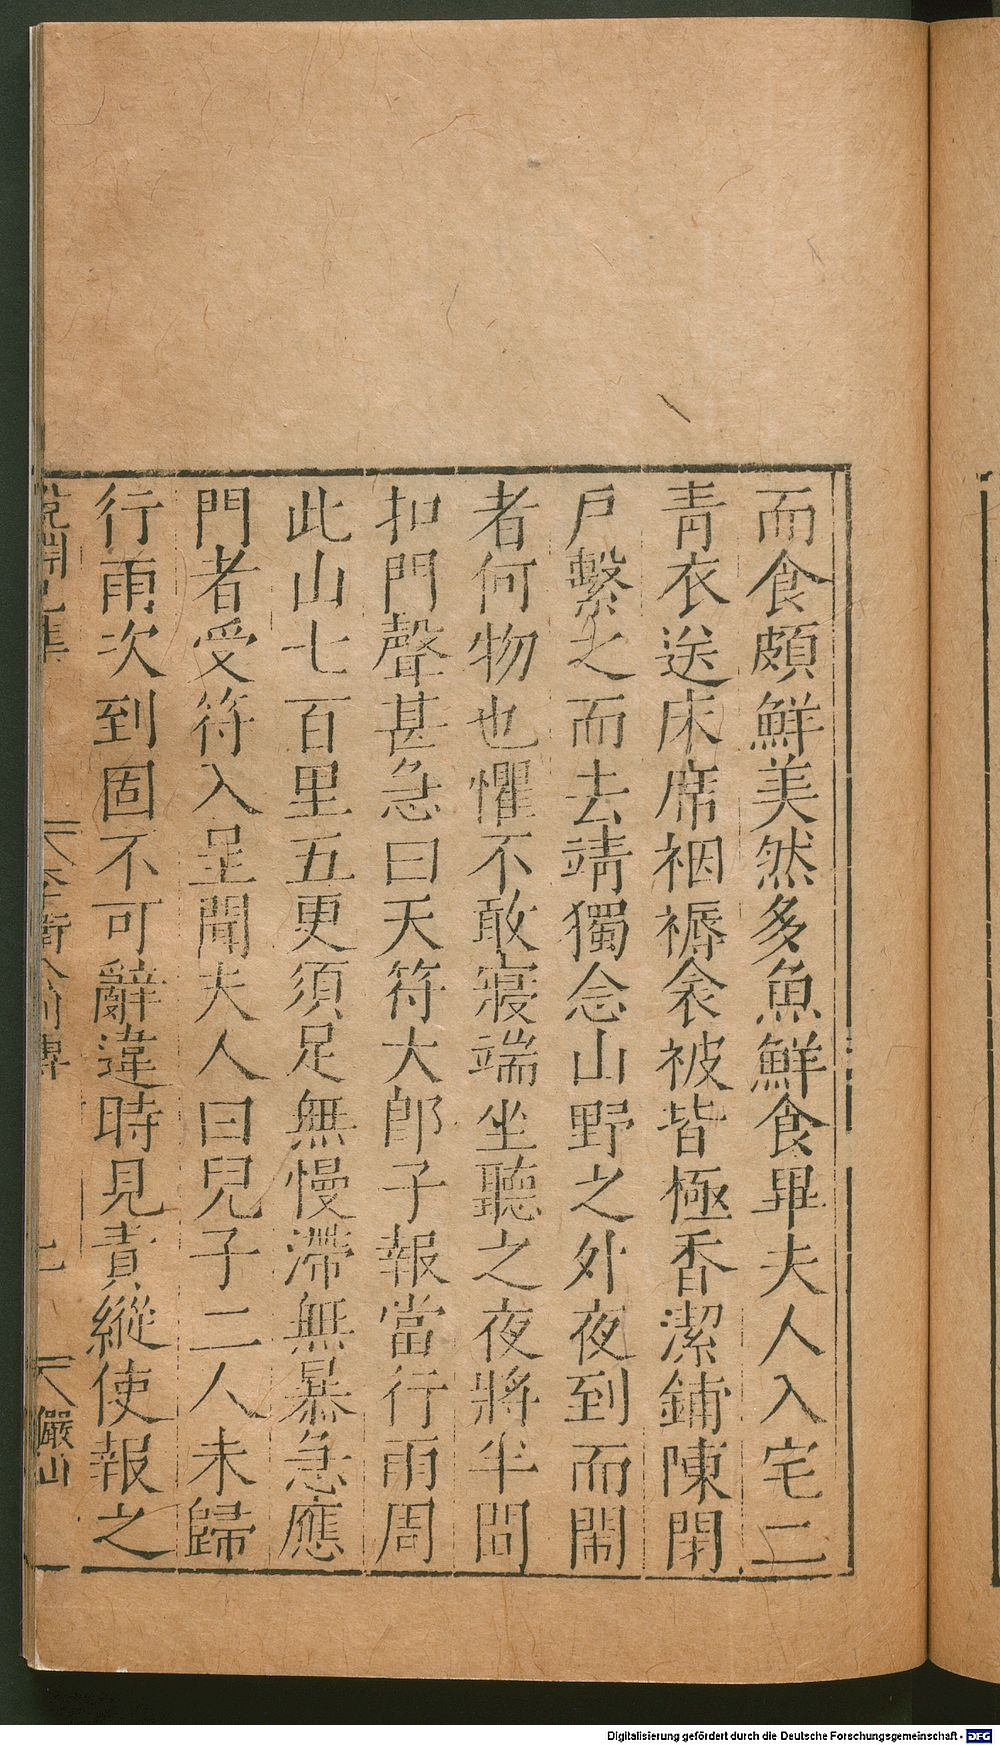 而食頗鮮美然多魚鮮食畢夫人入宅二
青衣送床席裀褥衾被皆極香潔鋪陳閉
戶繫之而去靖獨念山野之外夜到而閙
者何物也懼不敢寢端坐聽之夜將半聞
扣門聲甚急曰天符大郎子報當行雨周
此山七百里五更須足無慢滯無暴急應
門者受符入呈聞夫人曰兒子二人未歸
行雨次到固不可辭違時見責縱使報之
說淵己集
李衛公別傳
七
儼山
Digitalisierung gefördert durch die Deutsche Forschungsgemeinschaft - DFG